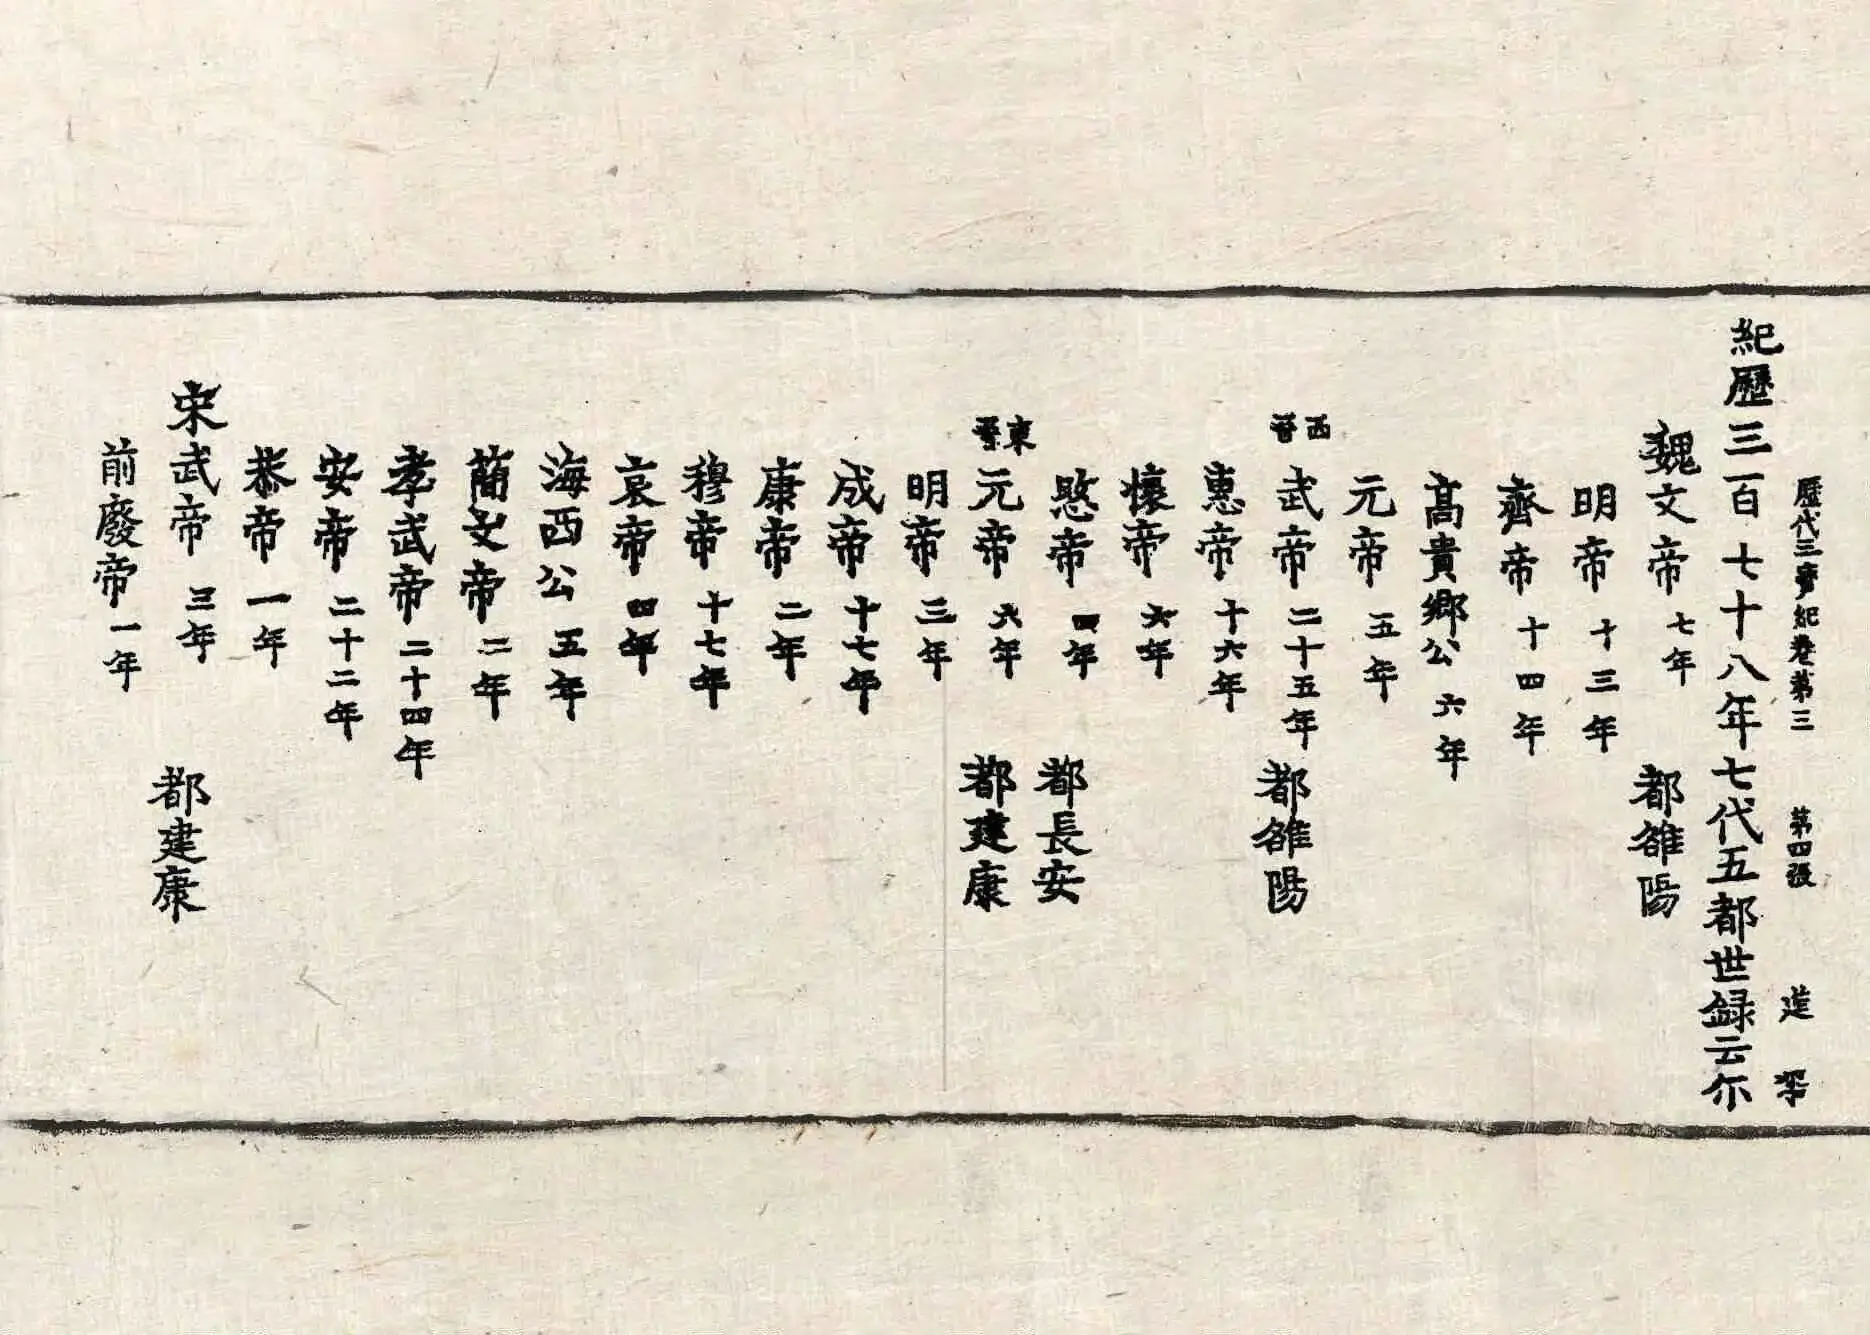 歷代三寶紀卷第三　第四張　進
紀歷三百七十八年七代五都世録云尒
魏文帝七年　都雒陽
明帝十三年
齊帝十四年
髙貴鄉公六年
元帝五年
西晉武帝二十五年　都雒陽
惠帝十六年
懷帝六年
愍帝四年　都長安
東晉元帝六年　都建康
明帝三年
成帝十七年
康帝二年
穆帝十七年
哀帝四年
海西公五年
簡文帝二年
孝武帝二十四年
安帝二十二年
恭帝一年
宋武帝三年　都建康
前廢帝一年